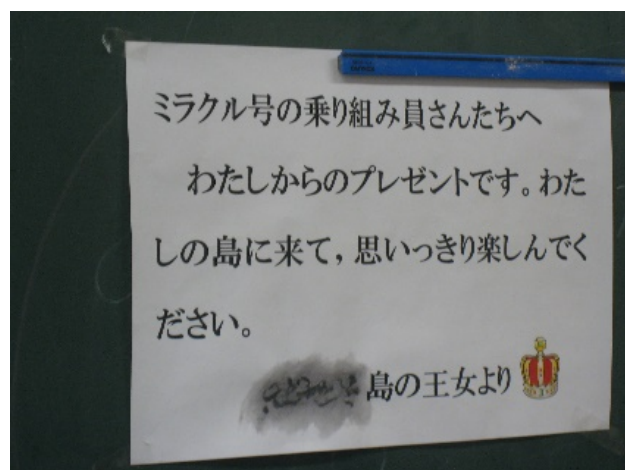 ミラクル号の乗り組み員さんたちへ
わたしからのプレゼントです。わた
しの島に来て，思いっきり楽しんでく
ださい。
島の王女より